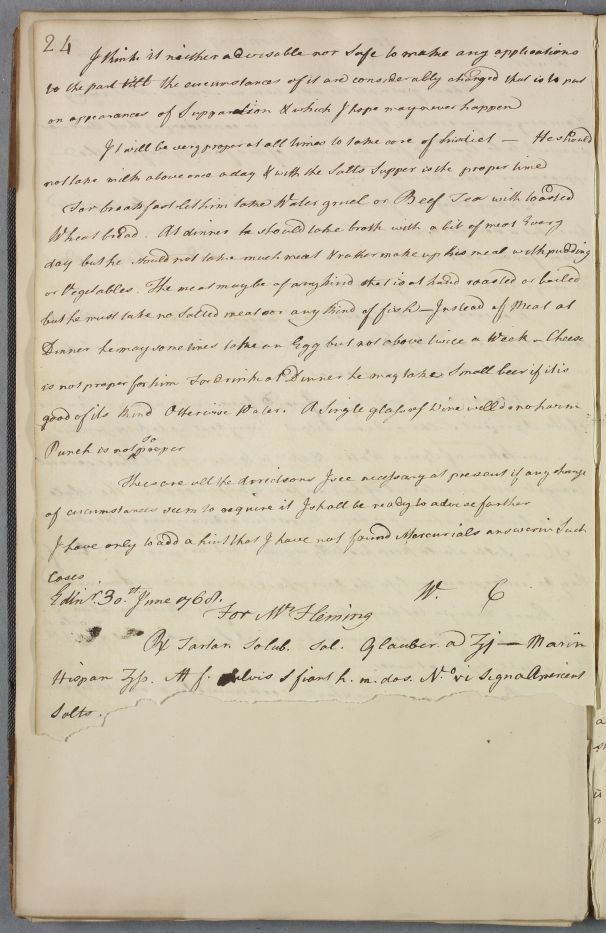 24
I think it neither advisable nor safe to make any applications
to the part till the circumstances of it are considerably changed that is to put
on appearances of Suppuration & which I hope may never happen
It will be very proper at all times to take care of his diet — He should
not take milk above once a day & with the Salts Supper is the proper time
For breakfast let him take Water gruel or Beef Tea with toasted
Wheat bread. At dinner he should take broth with a bit of meat Every
day but he should not take much meat & rather make up his meal with pudding
or Vegetables. The meat may be of any kind that is at hand roasted or boiled
but he must take no Salted meat or any kind of fish — Instead of Meat at
Dinner he may sometimes take an Egg but not above twice a Week — Cheese
is not proper for him For drink at Dinner he may take Small beer if it is
good of its kind Otherwise Water. A Single glass of Wine will do no harm
Punch is not so proper
These are all the directions I see necessary at present if any change
of circumstances seem to require it I shall be ready to advise farther
I have only to add a hint that I have not found Mercurials answer in Such
Cases
Edinr. 30th June 1768. W. C
For Mr Fleming
Rx Tartar. Solub. Sal. Glauber. a ʒj —
Hispan ʒß. M f. pulvis S fiant h. m. dos. No vi Signa
Salts.